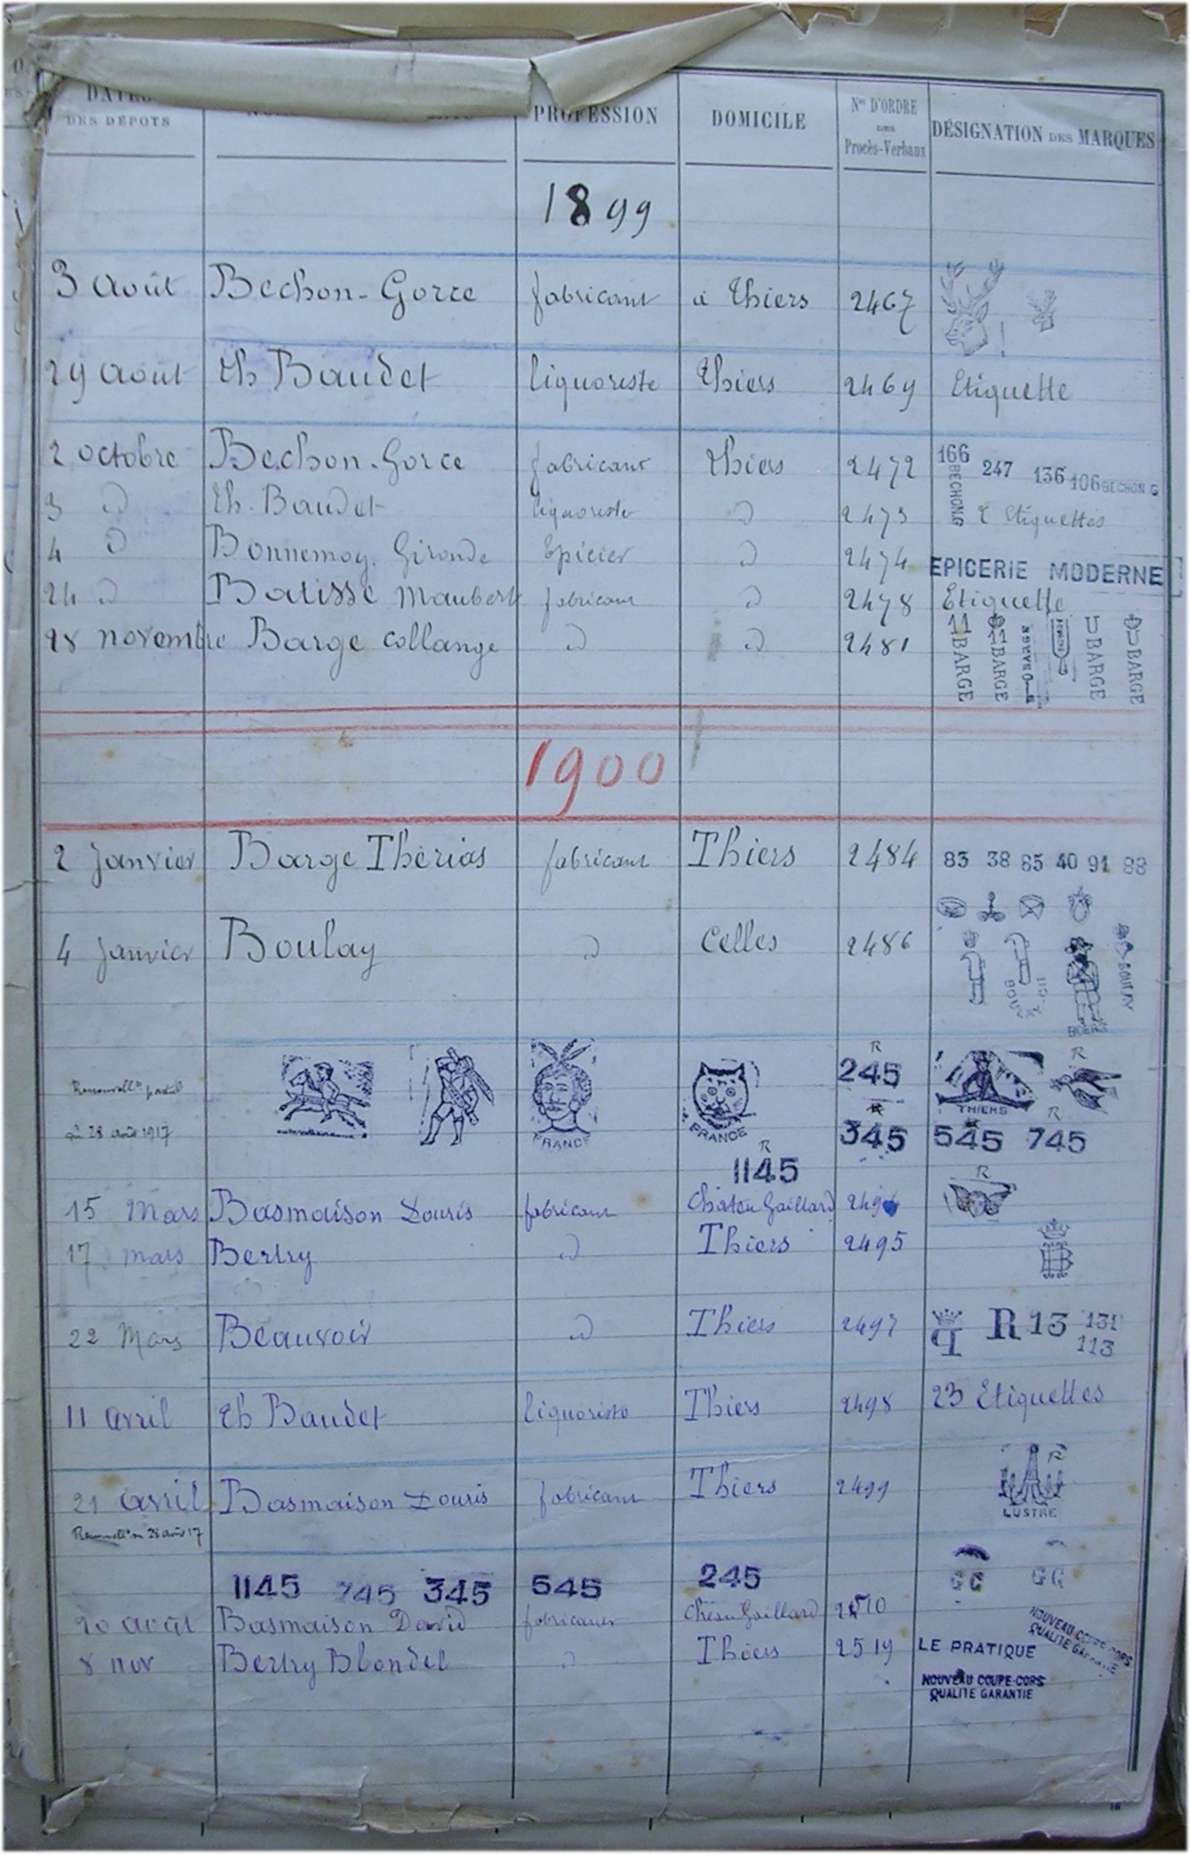 DES DÉPOTS PROFESSION DOMICILE Nos D'ORDRE DES Procès-Verbaux DÉSIGNATION DES MARQUES
1899
3 Août Bechon-Gorce fabricant à Thiers 2467
29 Août Th Baudet liquoriste Thiers 2469 Etiquette
2 octobre Bechon-Gorce fabricant Thiers 2472 166 BECHON G 247 136 106 BECHON G
3 " Th. Baudet liquoriste " 2473 2 Etiquettes
4 " Bonnemoy Gironde Epicier " 2474 EPICERIE MODERNE
24 " Batisse Maubert fabricant " 2478 Etiquette
28 novembre Barge Collange " " 2481 11 BARGE 11 BARGE U BARGE BARGE
1900
2 Janvier Barge Thérias fabricant Thiers 2484 83 38 85 40 91 88
4 Janvier Boulay " Celles 2486
BOULAY
R R
245 THIERS
du 28 août 1917 FRANCE FRANCE 345 545 R 745
R 1145 R
15 Mars Basmaison Douris fabricant Chateau Gaillard
17 mars Bertry " Thiers 2495
22 Mars Beauvoir " Thiers 2497 R 13 131
113
11 avril Th Baudet liquoriste Thiers 2498 23 Etiquettes
21 avril Basmaison Douris fabricant Thiers 2499 R LUSTRE
28 août 17
1145 745 345 545 245 GG GG
20 août Basmaison David fabricant Gaillard 2510 NOUVEAU COUPE-CORS
QUALITE GARANTIE
8 nov Bertry Blondel " Thiers 2519 LE PRATIQUE
NOUVEAU COUPE-CORS
QUALITE GARANTIE